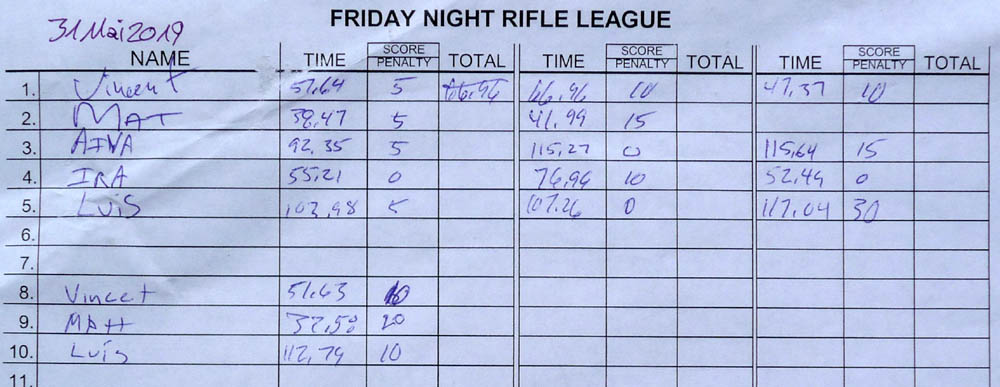 FRIDAY NIGHT RIFLE LEAGUE
31 Mai 2019
NAME TIME SCORE PENALTY TOTAL TIME SCORE PENALTY TOTAL TIME SCORE PENALTY TOTAL
1. Vincent 57,64 5 66,96 10 47,37 10
2. MAT 38,47 5 41,99 15
3. AINA 92,35 5 115,27 0 115,64 15
4. IRA 55,21 0 76,96 10 52,49 0
5. Luis 103,98 5 107,26 0 117,04 30
6.
7.
8. Vincet 51,63 10
9. MATT 37,50 20
10. Luis 112,79 10
11.